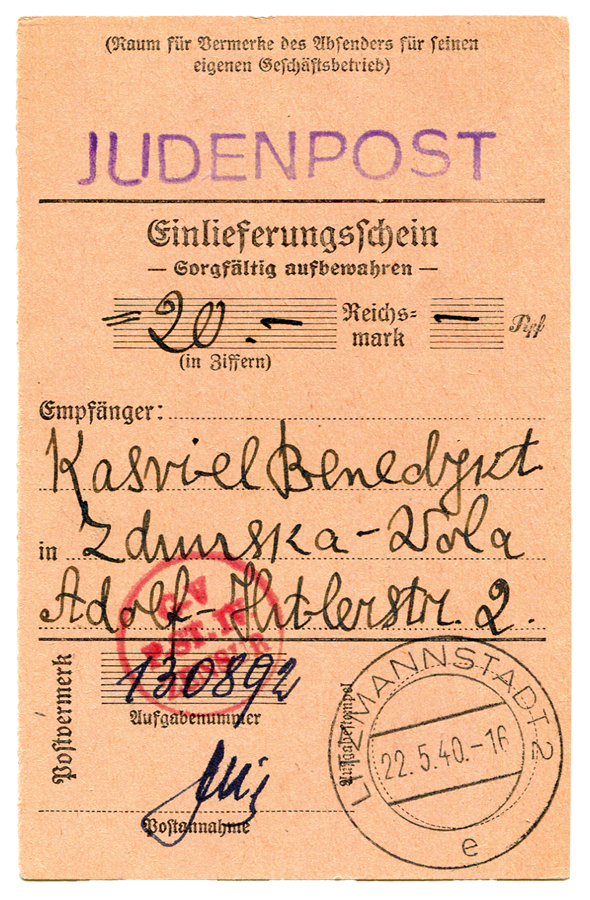 (Raum für Vermerke des Absenders für seinen
eigenen Geschäftsbetrieb)
JUDENPOST
Einlieferungsschein
— Sorgfältig aufbewahren —
= 20.— Reichs=
mark — Rpf
(in Ziffern)
Empfänger:
Kasriel Benedykt
in Zdunska-Wola
Adolf-Hitlerstr. 2.
130892
Aufgabenummer
Postvermerk
Postannahme
Aufgabestempel
LITZMANNSTADT 2
22.5.40.-16
e